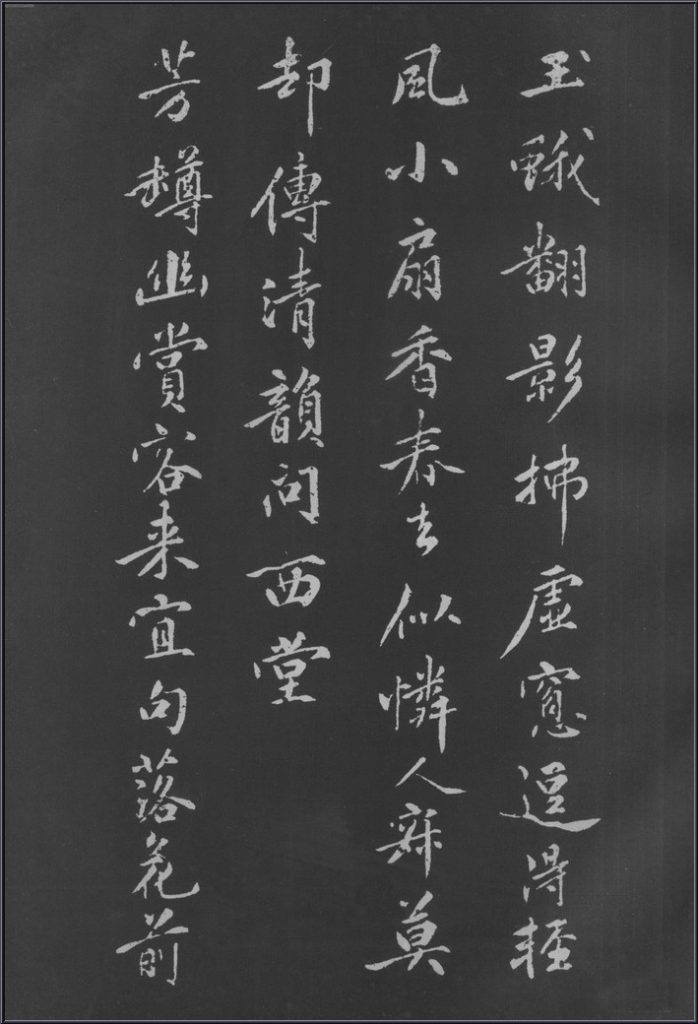 玉蛾翻影拂虛窻逗得輕
風小扇香春去似憐人寂莫
却傳清韻問西堂
芳罇幽賞客来宜句落花前